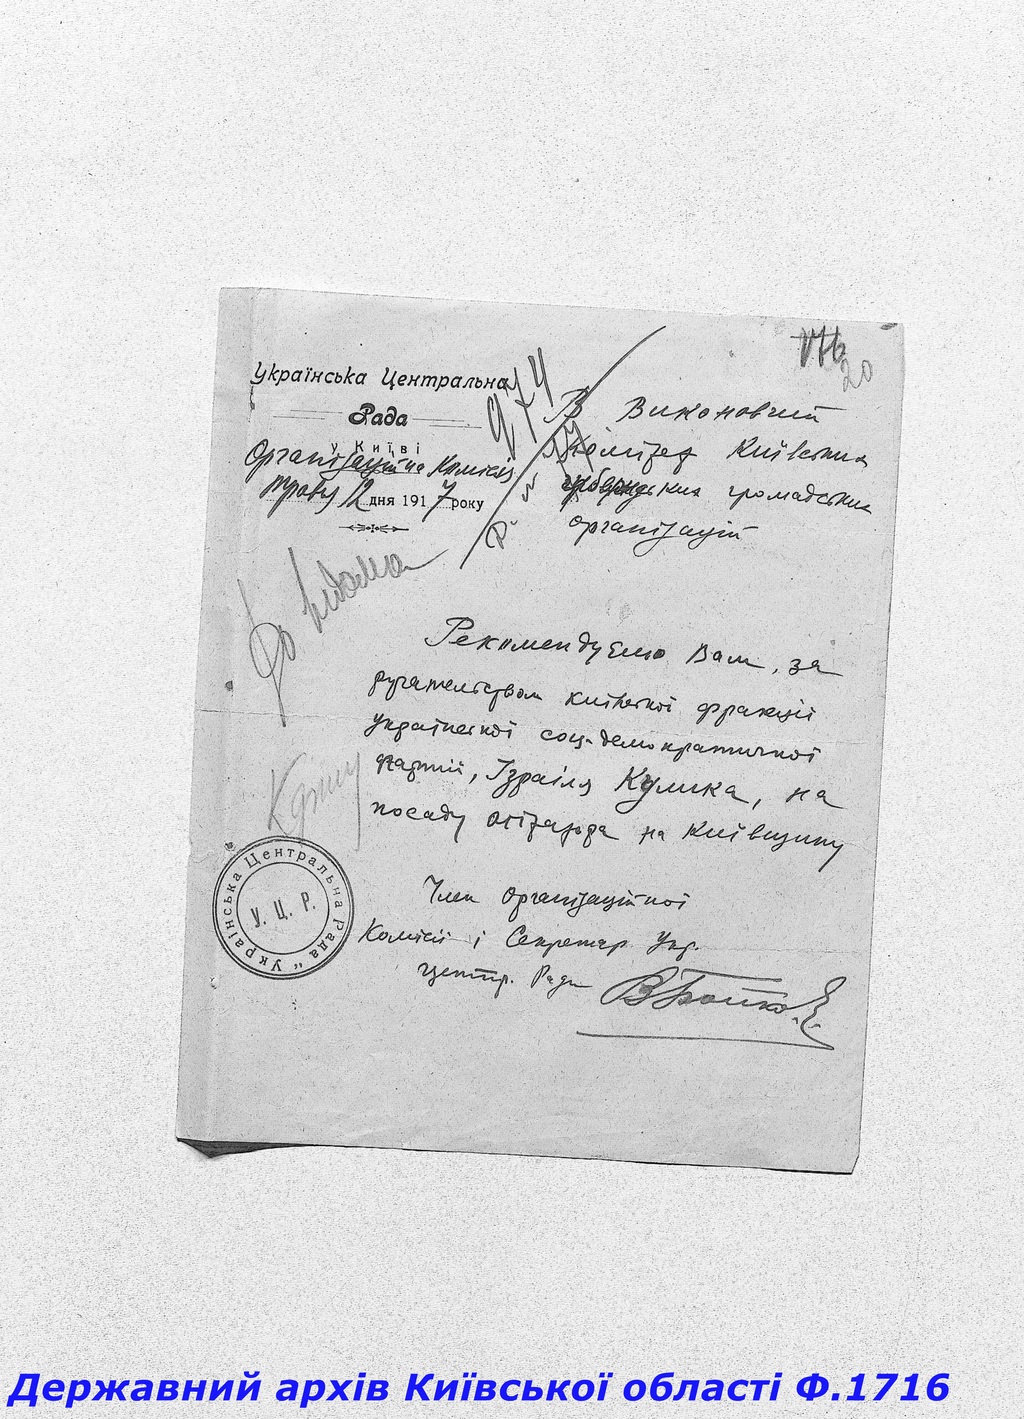 Українська Центральна
Рада
у Київі
Організаційна Комісія
травня 12 дня 1917 року
974
20
В Виконовчий
Комітет Київських
губерндських громадських
організацій
До відома
Рекомендуємо Вам, за
ручательством київської фракції
української соц.-демократичної
партії, Ізраіля Кулика, на
посаду агітатора на Київщину
Член організаційної
Комісії і Секретар Укр.
центр. Ради
В Бойко
"Українська Центральна Рада"
У. Ц. Р.
Державний архів Київської області Ф.1716